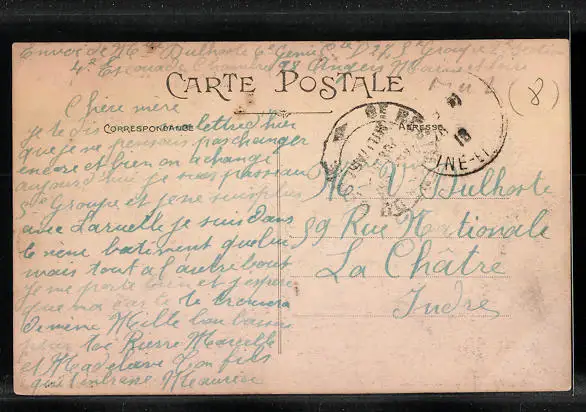 Envoi de M Dulhoste 6e Génie Cie D 27 5e Groupe 2e Section
4e Escouade Chambre 98 Angers Maine et Loire
CARTE POSTALE
(8)
CORRESPONDANCE
ADRESSE
Chère mère
Je te dis lettre d hier
que je ne pensais pas changer
encore et bien on a changé
aujourd hui je suis passé au
5e Groupe et je ne suis plus
avec Laruelle je suis dans
le même batiment que lui
mais tout a l autre bout
Je me porte bien et j espère
que ma carte te trouvera
de même Mille bon baiser
pour toi Pierre Marcelle
et Madeleine Ton fils
qui t embrasse Maurice
Me Ve Dulhoste
59 Rue Nationale
La Châtre
Indre